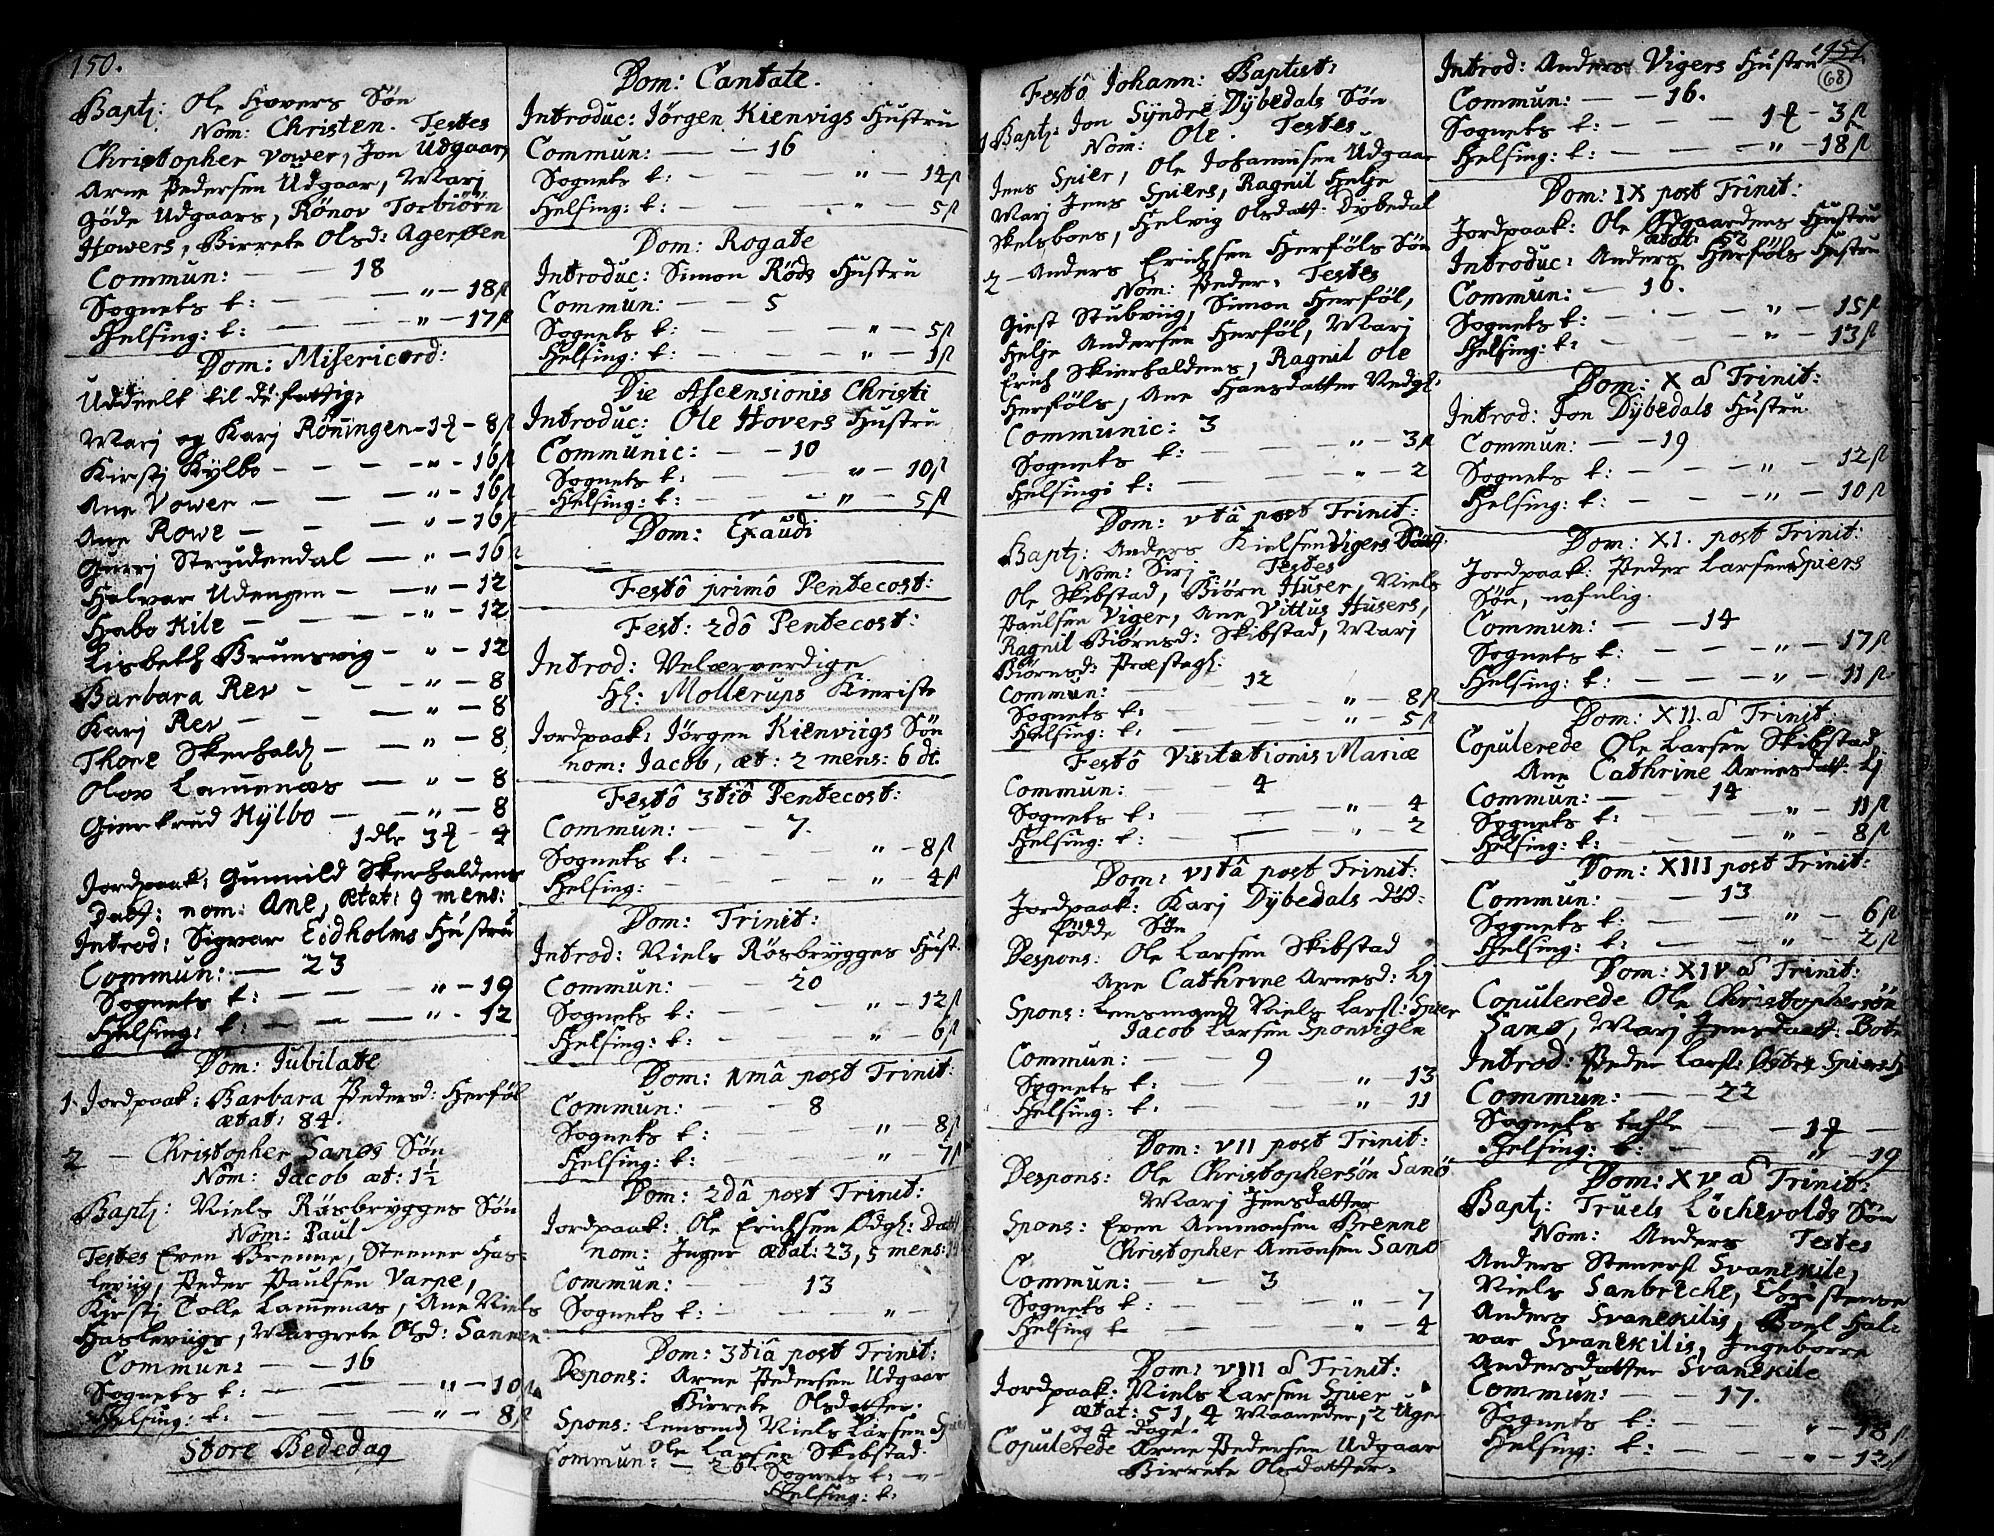 150.
Bapt: Ole Hovers Søn
Nom: Christen. Testes
Christopher Vower, Jon Udgaar,
Arne Pedersen Udgaar, Marj
Gøde Udgaars, Rönov Torbiörn
Howers, Birrete Olsd: Agerøen
Commun: — — 18
Sognets t: — — — " — 18 ß
Helsing: t: — — — " — 17 ß
Dom: Misericord:
Uddeelt til de fattige
Marj og Karj Röningen — 1 — 8 ß
Kirstj Kylbo — — — " — 16 ß
Ane Vower — — — " — 16 ß
Ane Rowe — — — " — 16 ß
Gurrj Strudendal — " — 16
Halvar Udengen — " — 12
Habo Kile — — — " — 12
Lisbeth Brunsvig — " — 12
Barbara Rev — — " — 8
Karj Rev — — — " — 8
Thore Skerhald — — " — 8
Olov Lamenæs — " — 8
Giertrud Kylbo — " — 8
1 dlr 3 — 4
Jordpaak: Gunnild Skerhaldens
Datt: nom: Ane, ætat: 9 mens:
Introd: Sigvar Eidholms Hustru
Commun: — 23
Sognets t: — — — " — 19
Helsing: t: — — — " — 12
Dom: Jubilate
1. Jordpaak: Barbara Pedersd: Herföl
ætat: 84.
2 — Christopher Sanøs Søn
Nom: Jacob æt: 1½
Bapt: Niels Røsbrygges Søn
Nom: Paul
Testes Even Brenne, Stenner Has-
leviig, Peder Paulsen Varpe,
Kirstj Tolle Lamenæs, Ane Niels
Haslevigs, Margrete Olsd: Sannen
Commun: — — 16
Sognets t: — — — " — 10 ß
Helsing: t: — — — " — 8 ß
Store Bededag
Dom: Cantate.
Introduc: Jörgen Kienvigs Hustru
Commun: — — 16
Sognets t: — — — " — 14 ß
Helsing: t: — — — " — 5 ß
Dom: Rogate
Introduc: Simon Røds Hustru
Commun: — — 5
Sognets t: — — — " — 5 ß
Helsing: t: — — — " — 1 ß
Die Ascensionis Christi
Introduc: Ole Hovers Hustru
Communic: — — 10
Sognets t: — — " — 10 ß
Helsing: t: — — " — 5 ß
Dom: Exaudi
Festô primô Pentecost:
Fest: 2dô Pentecost:
Introd: Velærverdige
Hl: Mollerups Kieriste
Jordpaak: Jörgen Kienviigs Søn
nom: Jacob, æt: 2 mens: 6 d:
Festô 3tiô Pentecost:
Commun: — — 7.
Sognets t: — — — " — 8 ß
Helsing: — — — " — 4 ß
Dom: Trinit:
Introd: Niels Røsbrygges Hust.
Commun: — — 20
Sognets t: — — — " — 12 ß
Helsing: t: — — — " — 6 ß
Dom: 1mâ post Trinit:
Commun: — — 8
Sognets t: — — — " — 8 ß
Helsing: t: — — — " — 7 ß
Dom: 2dâ post Trinit:
Jordpaak: Ole Erichsen Ødg: Datt
nom: Inger ætat: 23, 5 mens:
Commun: — — 13
Sognets t: — — — " — 7
Dom: 3tiâ post Trinit:
Despons: Arne Pedersen Udgaar
Birrete Olsdatter.
Spons: Lensmd Niels Larsen
Ole Larsen Skibstad
Commun: — 26
Sognets t: — —
Helsing: t:
Festô Johann: Baptist:
1 Bapt: Jon Syndre Dybedals Søn
Nom: Ole. Testes
Jens Spier, Ole Johannsen Udgaar
Marj Jens Spiers, Ragnil Helje
Skelsboes, Helvig Olsdatt: Dybedal
2 — Anders Erichsen Herföls Søn
Nom: Peder. Testes
Giest Stubviig, Simon Herföl,
Helje Andersen Herföl, Marj
Erich Skierhaldens, Ragnil Ole
Herföls, Ane Hansdatter Vedg:
Communic: 3
Sognets t: — — — " — 3 ß
Helsing: t: — — — " — 2
Dom: vtâ post Trinit:
Bapt: Anders Kielsen Vigers Datt.
Nom: Sirj Testes
Ole Skibstad, Biørn Huser, Niels
Paulsen Viger, Ane Vittus Husers,
Ragnil Biørnsd: Skibstad, Marj
Biørnsd: Præstag:
Commun: — — 12
Sognets t: — — " — 8 ß
Helsing: t: — — " — 5 ß
Festô Visitationis Mariæ
Commun: — — 4
Sognets t: — — — " — 4
Helsing: t: — — — " — 2
Dom: vitâ post Trinit:
Jordpaak: Karj Dybedals død-
fødde Søn
Despons: Ole Larsen Skibstad
Ane Cathrine Arnesd: Lj
Spons: Lensmand Niels Lars: Spier
Jacob Larsen Sponvigen
Commun: — — 9
Sognets t: — — — " 13
Helsing: t: — — — " 11
Dom: VII post Trinit:
Despons: Ole Christophersön Sanö
Marj Jensdatter
Spons: Even Ammonsen Brenne
Christopher Amonsen Sanö
Commun: — — 3
Sognets t: — — — " — 7
Helsing t — — — " — 4
Dom: VIII a Trinit:
Jordpaak: Niels Larsen Spier
ætat: 51, 4 Maaneder, 2 Uger
og 4 dage.
Copulerede Arne Pedersen Udgaar
Birrete Olsdatter.
151
68
Introd: Anders Vigers Hustru
Commun: — — 16.
Sognets t: — — — 1 — 3 ß
Helsing: t: — — — " — 18 ß
Dom: IX post Trinit:
Jordpaak: Ole Ødgaardens Hustru
ætat: 52
Introduc: Anders Herföls Hustru
Commun: — 16.
Sognets t: — — — " — 15 ß
Helsing: t: — — — " — 13 ß
Dom: X a Trinit:
Introd: Jon Dybedals Hustru
Commun: — — 19
Sognets t: — — — " — 12 ß
Helsing: t: — — — " — 10 ß
Dom: XI. post Trinit:
Jordpaak: Peder Larsen Spiers
Søn, nafnlig.
Commun: — — 14
Sognets t: — — — " — 17 ß
Helsing: t: — — — " — 11 ß
Dom: XII. a Trinit:
Copulerede Ole Larsen Skibstad
Ane Cathrine Arnesdatt: Lj
Commun: — — 14
Sognets t: — — — " — 11 ß
Helsing: t: — — — " — 8 ß
Dom: XIII post Trinit:
Commun: — — 13
Sognets t: — — — " — 6 ß
Helsing: t: — — — " — 2 ß
Dom: XIV a Trinit:
Copulerede Ole Christophersön
Sanø, Marj Jensdatt: Botn
Introd: Peder Lars: Østre Spiers H
Commun: — — 22
Sognets tafle — — 1 —
Helsing: t: — — " — 19
Dom: XV a Trinit:
Bapt: Truels Löchevolds Søn
Nom: Anders Testes
Anders Steners Svanekile,
Niels Sanbrèche, Christense
Anders Svanekilis, Boel Hal-
var Svanekilis, Ingeborre
Andersdatter Svanekile
Commun: — — 17.
Sognets t: — — — " — 18 ß
Helsing: t: — — — " — 12 ß